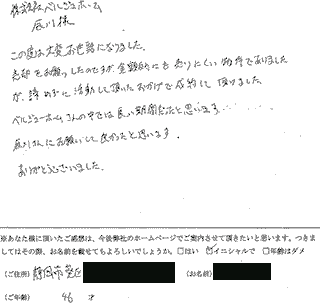 株式会社ベルジュホーム
辰川様
この度は大変お世話になりました。
売却をお願いしたのですが、金額的にも売りにくい物件でありました
が、諦めずに活動して頂いたおかげで成約して頂けました。
ベルジューホームさんの中では長い期間だったと思います……
辰川さんにお願いして良かったと思います。
ありがとうございました。
※あなた様に頂いたご感想は、今後弊社のホームページでご案内させて頂きたいと思います。つきま
してはその際、お名前を載せてもよろしいでしょうか。□はい ☑イニシャルで □年齢はダメ
(ご住所) 静岡市葵区 (お名前)
(ご年齢) 46 才